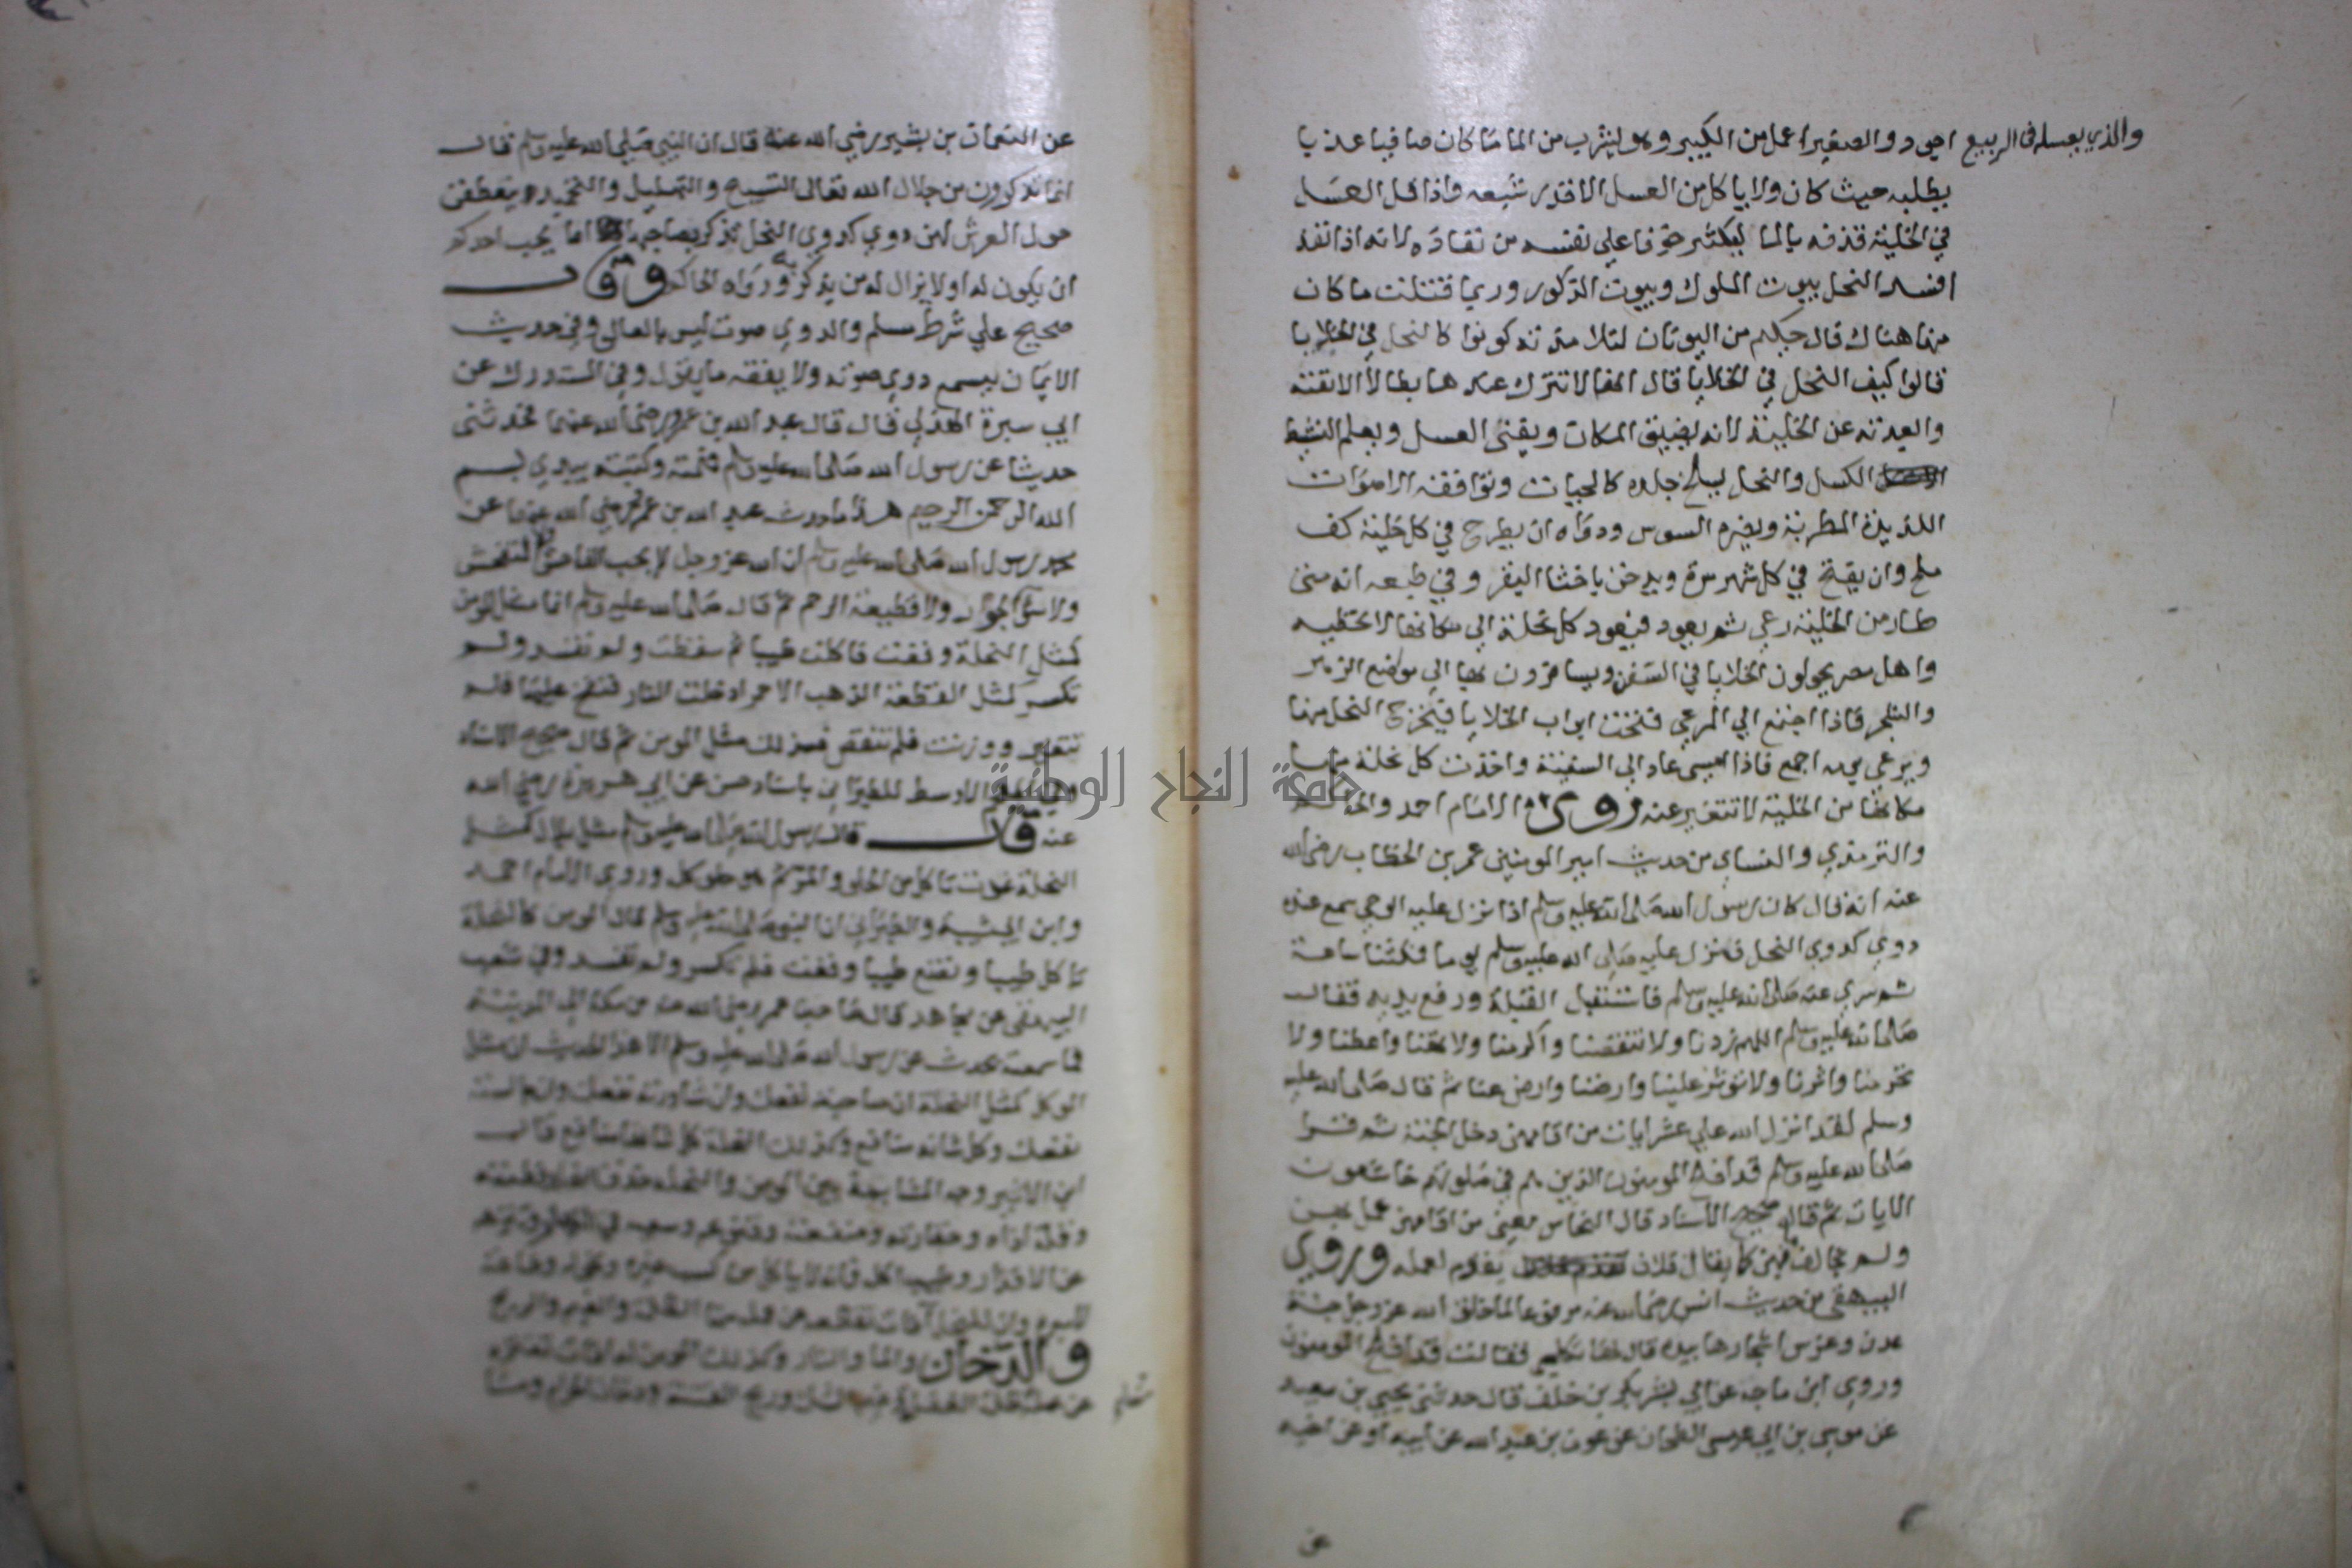 والذي يعسله في الربيع اجود والصغير اعمل من الكبير وهو ليشرب من الما ما كان صافيا عذبا
يطلبه حيث كان ولا ياكل من العسل الا قدر شبعه واذا قل العسل
في الخلية قذفه بالما ليكثر خوفا علي نفسه من نفاده لانه اذا نفد
افسد النحل بيوت الملوك وبيوت الذكور وربما قتلت ما كان
منها هناك قال حكيم من اليونان لتلامذته كونوا كالنحل في الخلايا
قالوا كيف النحل في الخلايا قال انها لا تترك عندها بطالا الا نفته
وابعدته عن الخلية لانه يضيق المكان ويفني العسل ويعلم النشيط
الكسل والنحل يسلخ جلده كالحيات وتوافقه الاصوات
اللذيذة المطربة ويضره السوس ودواه ان يطرح في كل خلية كف
ملح وان يفتح في كل شهر مرة ويدخن باخثا البقر وفي طبعه انه متي
طار من الخلية رعي ثم يعود فيعود كل نحلة الي مكانها لا تخطيه
واهل مصر يحولون الخلايا في السفن ويسافرون بها الي موضع الزهر
والشجر فاذا اجتمع الي المرعي فتحت ابواب الخلايا فيخرج النحل منها
ويرعي يومه اجمع فاذا امسي عاد الي السفينة واخذت كل نحلة منها
مكانها من الخلية لا تتغير عنه روي الامام احمد والحاكم
والترمذي والنساي من حديث امير المومنين عمر بن الخطاب رضي الله
عنه انه قال كان رسول الله صلي الله عليه وسلم اذا نزل عليه الوحي سمع عنده
دوي كدوي النحل فنزل عليه صلي الله عليه وسلم يوما فمكثنا ساعة
ثم سري عنه صلي الله عليه وسلم فاستقبل القبلة ورفع يديه فقال
صلي الله عليه وسلم اللهم زدنا ولا تنقصنا واكرمنا ولا تهنا واعطنا ولا
تحرمنا واثرنا ولا توثر علينا وارضنا وارض عنا ثم قال صلي الله عليه
وسلم لقد انزل الله علي عشر ايات من اقامهن دخل الجنة ثم قرا
صلي الله عليه وسلم قد افلح المومنون الذين هم في صلوتهم خاشعون
الايات ثم قال صحيح الاسناد قال النحاس معني من اقامهن عمل بهن
ولم يخالف فيهن كما يقال فلان يقوم لعمله وروي
البيهقي من حديث انس رضي الله عنه مرفوعا لما خلق الله عز وجل جنة
عدن وغرس اشجارها بيده قال لها تكلمي فقالت قد افلح المومنون
وروي ابن ماجه عن ابي بشر بكر بن خلف قال حدثني يحيي بن سعيد
عن موسي بن ابي عيسي الطحان عن عون بن عبد الله عن ابيه او عن اخيه
عن
عن النعمان بن بشير رضي الله عنه قال ان النبي صلي الله عليه وسلم قال
انما تذكرون من جلال الله تعالي التسبيح والتهليل والتحميد يتعطفن
حول العرش لهن دوي كدوي النحل تذكر بصاحبها اما يحب احدكم
ان يكون له او لا يزال له من يذكر به ورواه الحاكم وقال
صحيح علي شرط مسلم والدوي صوت ليس بالعالي وفي حديث
الايمان يسمع دوي صوته ولا يفقه ما يقول وفي المستدرك عن
ابي سبرة الهذلي قال قال عبد الله بن عمر رضي الله عنهما فحدثني
حديثا عن رسول الله صلي الله عليه وسلم فهمته وكتبته بيدي بسم
الله الرحمن الرحيم هذا ما حدث عبد الله بن عمر رضي الله عنهما عن
محمد رسول الله صلي الله عليه وسلم ان الله عز وجل لا يحب الفاحش ولا المتفحش
ولا سوء الجوار ولا قطيعة الرحم ثم قال صلي الله عليه وسلم انما مثل المومن
كمثل النحلة وقعت فاكلت طيبا ثم سقطت ولم تفسد ولم
تكسر كمثل القطعة الذهب الاحمر ادخلت النار فنفخ عليها فلم
تتغير ووزنت فلم تنقص فذلك مثل المومن ثم قال صحيح الاسناد
وفي الاوسط للطبراني باسناد حسن عن ابي هريرة رضي الله
عنه قال قال رسول الله صلي الله عليه وسلم مثل بلال كمثل
النحلة غدت تاكل من الحلو والمر ثم هو حلو كله وروي الامام احمد
وابن ابي شيبة والطبراني ان النبي صلي الله عليه وسلم قال المومن كالنحلة
تاكل طيبا وتضع طيبا وقعت فلم تكسر ولم تفسد وفي شعب
البيهقي عن مجاهد قال صاحبت عمر رضي الله عنه من مكة الي المدينة
فما سمعته يحدث عن رسول الله صلي الله عليه وسلم الا هذا الحديث ان مثل
المومن كمثل النحلة ان صاحبته نفعك وان شاورته نفعك وان جالسته
نفعك وكل شانه منافع وكذلك النحلة كل شانها منافع قال
ابن الاثير وجه المشابهة بين المومن والنحلة حذق النحل وفطنته
وقلة اذاه وحقارته ومنفعته وقنوعه وسعيه في وتنزهه
عن الاقذار وطيب اكله فانه لا ياكل من كسب غيره وطاعته
لاميره وان للنحل افات تقطعه عن عمله منها الظلمة والغيم والريح
والدخان والما والنار وكذلك المومن له افات تفتره
عن عمله ظلمة الغفلة وغيم الشك وريح الفتنة ودخان الحرام وما
جامعة النجاح الوطنية